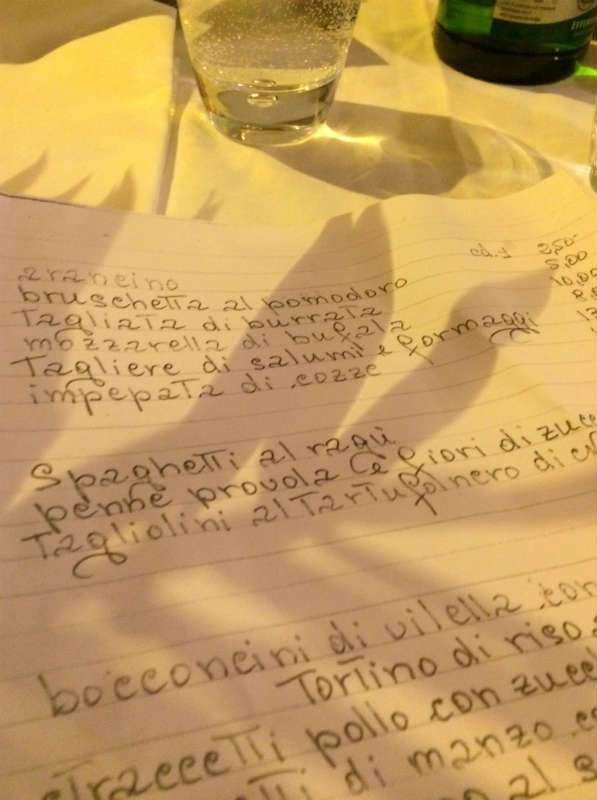 arancino cd.1 2,50
bruschetta al pomodoro 5,00
Tagliata di burrata 10,00
mozzarella di bufala
Tagliere di salumi e formaggi
impepata di cozze
Spaghetti al ragù
penne provola e fiori di zucc
Tagliolini al Tartufo nero di
bocconcini di vilella con
Tortino di riso
straccetti pollo con zucc
di manzo
al